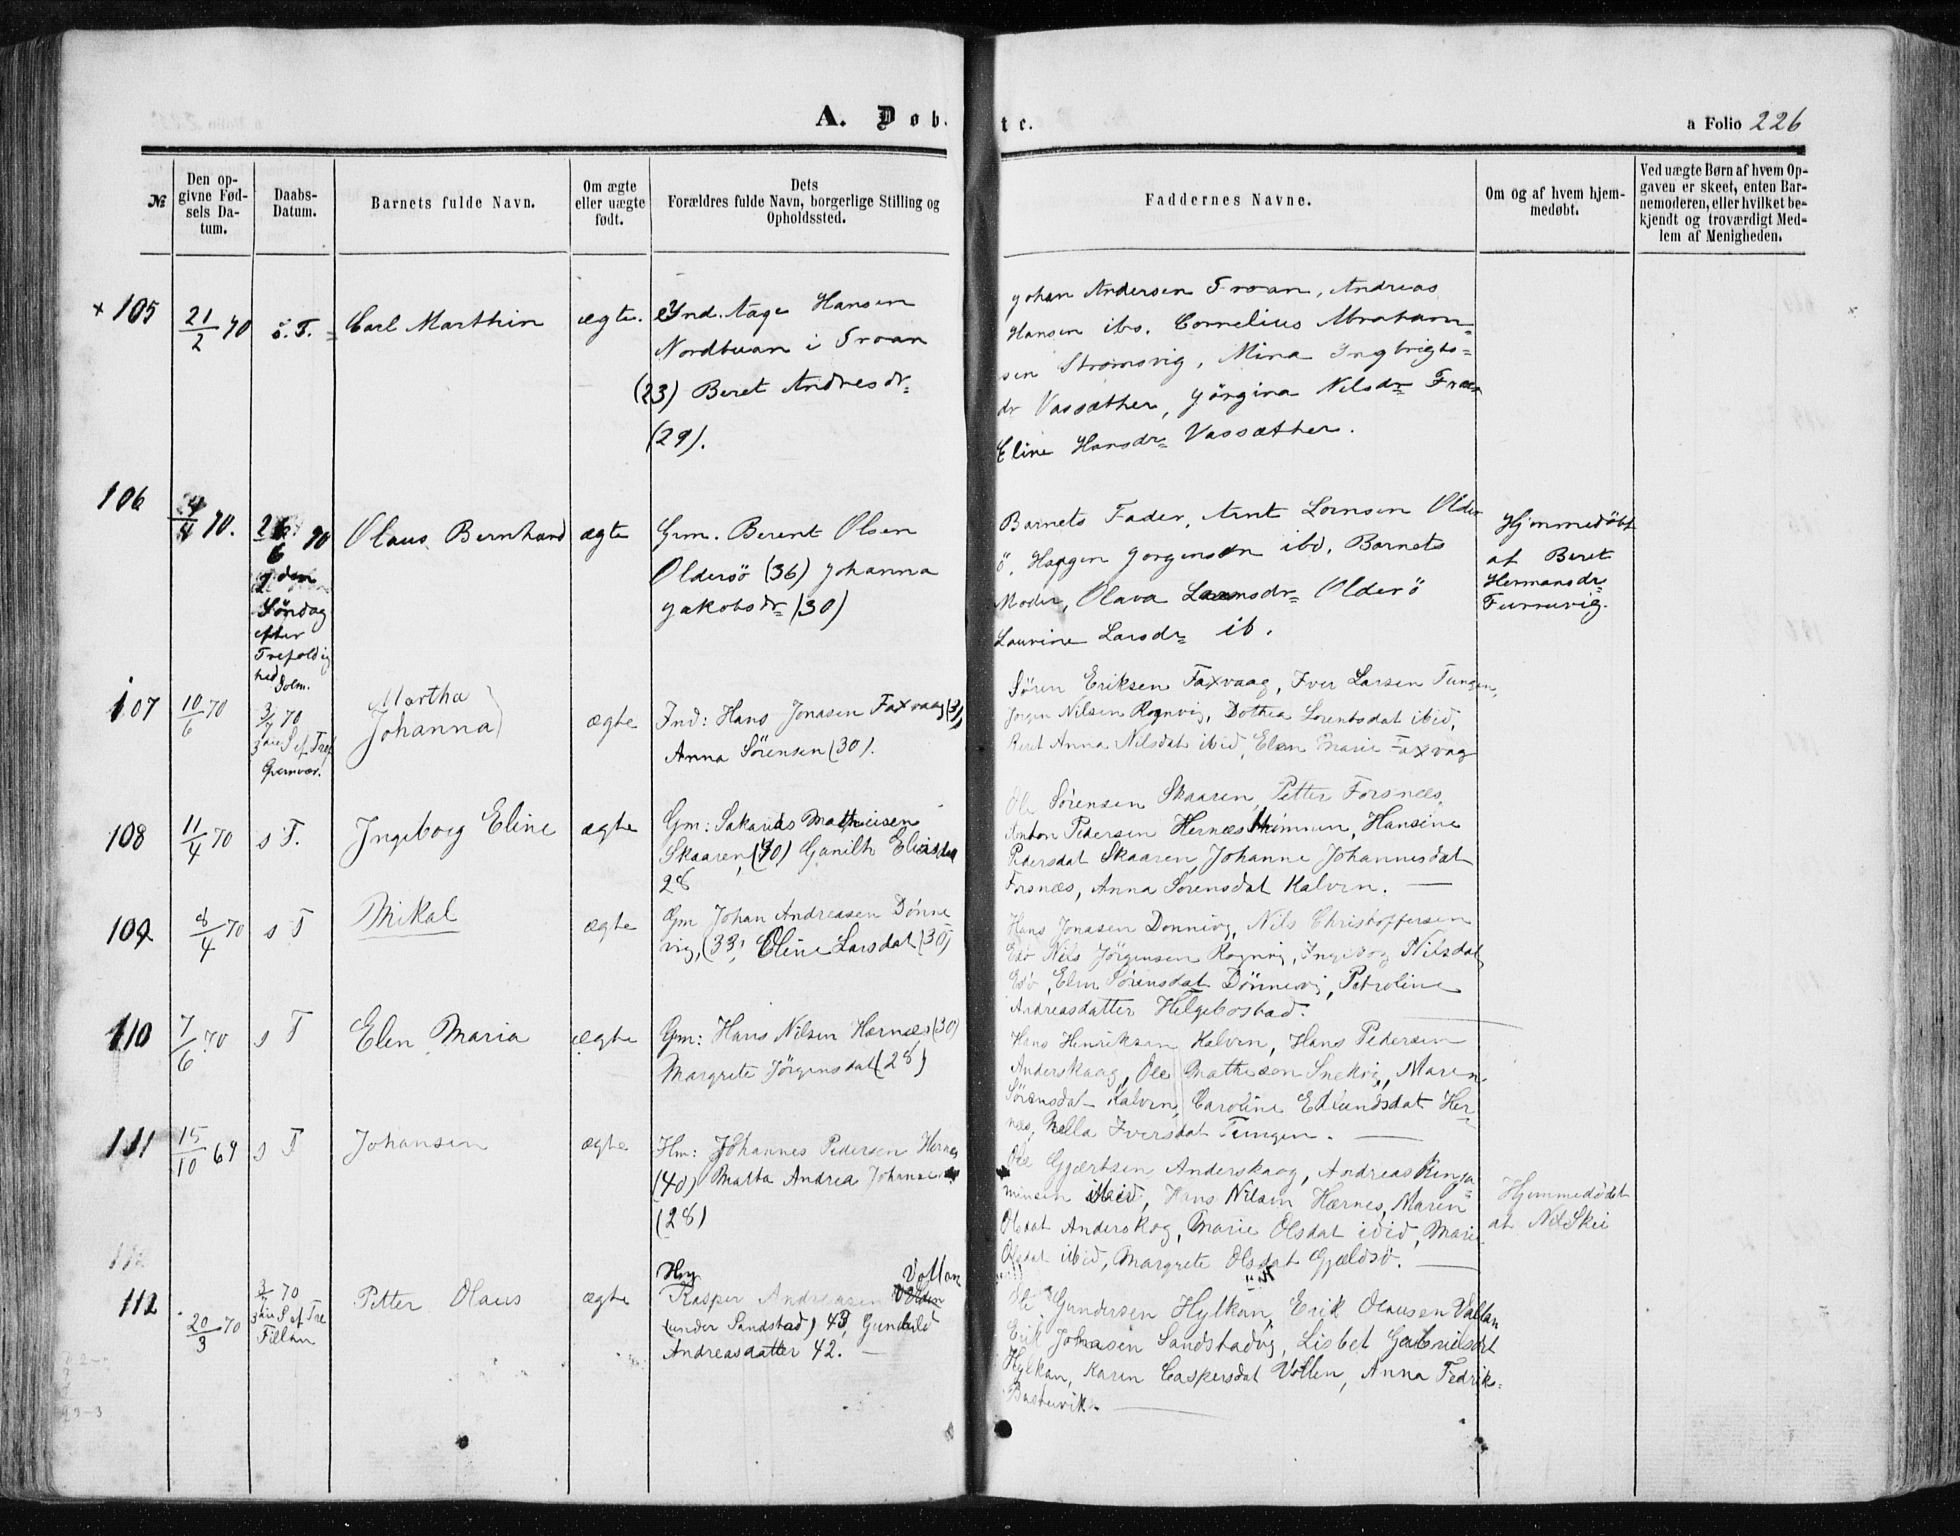 A. Døb-
te.
a Folio 226
№
Den op-
givne Fød-
sels Da-
tum.
Daabs-
Datum.
Barnets fulde Navn.
Om ægte
eller uægte
født.
Dets
Forældres fulde Navn, borgerlige Stilling og
Opholdssted.
Faddernes Navne.
Om og af hvem hjem-
medøbt.
Ved uægte Børn af hvem Op-
gaven er skeet, enten Bar-
nemoderen, eller hvilket be-
kjendt og troværdigt Med-
lem af Menigheden.
+ 105
21/2 70
s. T.
Carl Marthin
ægte.
Ind. Aage Hansen
Nordbuan i Froan
(23) Beret Andresdr
(29).
Johan Andersen Froan, Andreas
Hansen ibs. Cornelius Abraham-
sen Strømsvig, Mina Ingbrigts-
dr Vassæther, Jørgina Nilsdr
Eline Hansdr Vassæther.
106
4/4 70.
26/6 70
den
Søndag
efter
Trefoldig
hed
Dolm.
Olaus Bernhard
ægte
Gm. Berent Olsen
Oldersø (36) Johanna
Jakobsdr (30)
Barnets Fader, Arnt Lornsen Older
ö, Haagen Jorgensen ibd, Barnets
Moder, Olava Larnsdr Olderö
Laurine Larsdr ib.
Hjemmedöbt
af Beret
Hermansdr
Furruvig.
107
10/6 70
3/7 70
3die S ef. Tref
Qvenvær.
Martha
Johanna
ægte
Ind: Hans Jonasen Faxvaag (31)
Anna Sørensen (30).
Søren Eriksen Faxvaag, Iver Larsen Tungen,
Jørgen Nilsen Rognvig, Dothea Lorentsdat ibid,
Beret Anna Nilsdat ibid, Elen Marie Faxvag
108
11/4 70
s T.
Ingeborg Eline
ægte
Gm: Sakarias Matheisen
Skaaren, (40) Gunilh Eliasda
28
Ole Sørensen Skaaren, Petter Forsnæs,
Anton Pedersen Hernæs, Hansine
Pedersdat Skaaren, Johanne Johannesdat
Forsnæs, Anna Sørensdat Kalven.
109
8/4 70
s T
Mikal
ægte
Gm Johan Andreasen Dønne
vig, (33, Eline Larsdat (30)
Hans Jonasen Donnivg, Nils Christoffersen
Edø Nils Jørgensen Rognvig, Ingeborg Nilsdat
Edø, Elen Sørensdat Dønnevig, Petroline
Andreasdatter Helgebostad.
110
7/6 70
s T
Elen Maria
ægte
Gm: Hans Nilsen Hærnæs (30)
Margrete Jørgensdat (28)
Hans Henriksen Kalven, Hans Pedersen
Anderskaag, Ole Mathesen Snekvig, Maren
Sørensdat Kalven, Caroline Edlundsdat Her-
næs, Nella Iversdat Tungen.
111
15/10 69
s T
Johansen
ægte
Hm: Johannes Pedersen Hernes
(40) Marta Andrea Johansen
(28)
Ole Gjærtsen Anderskaag, Andreas Benja-
minsen ibid, Hans Nilsen Hærnes, Maren
Olsdat Anderskog, Marie Olsdat ibid, Mari
Olsdat ibid, Margrete Olsdat Gjældsø.
Hjemmedødt
at Nils Skei
112
112
20/3 70
3/7 70
3die S ef. Tre
Fillan
Petter Olaus
ægte
Hm Vollan
Kasper Andreasen
(under Sandstad) 43, Gunhild
Andreasdatter 42.
Ole Gundersen Hylkan, Erik Olausen Vallan
Erik Johnsen Sandstadvig, Lisbet Gabrielsdat
Hylkan, Karen Caspersdat Vollen, Anna Fedriks-
Bustervik.